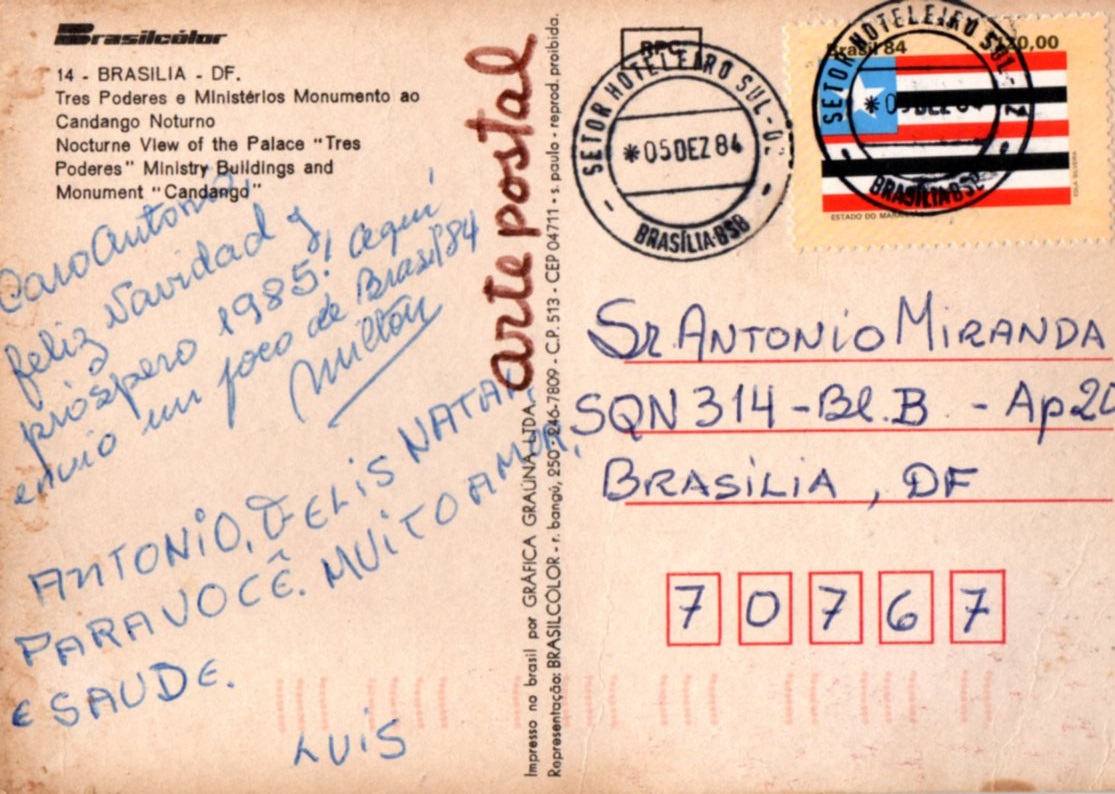 Brasilcolor
14 - BRASILIA - DF.
Tres Poderes e Ministérios Monumento ao
Candango Noturno
Nocturne View of the Palace "Tres
Poderes" Ministry Buildings and
Monument "Candango"
Caro Antonio,
feliz Navidad y
próspero 1985! aqui
envio um poco de Brasil 84
Milton
ANTONIO, FELIS NATAL
PARA VOCÊ. MUITO AMOR,
E SAUDE.
LUIS
arte postal
Impresso no brasil por GRÁFICA GRAÚNA LTDA.
Representação: BRASILCOLOR - r. bangú, 250 - 246-7809 - C.P. 513 - CEP 04711 - s. paulo - reprod. proibida.
RPC
SETOR HOTELEIRO SUL
*05 DEZ 84
BRASÍLIA-BSB
Brasil 84
SETOR HOTELEIRO SUL
*05 DEZ 84
BRASÍLIA-BSB
ESTADO DO
Sr. ANTONIO MIRANDA
SQN 314 - Bl. B - Ap 20
BRASÍLIA, DF
70767